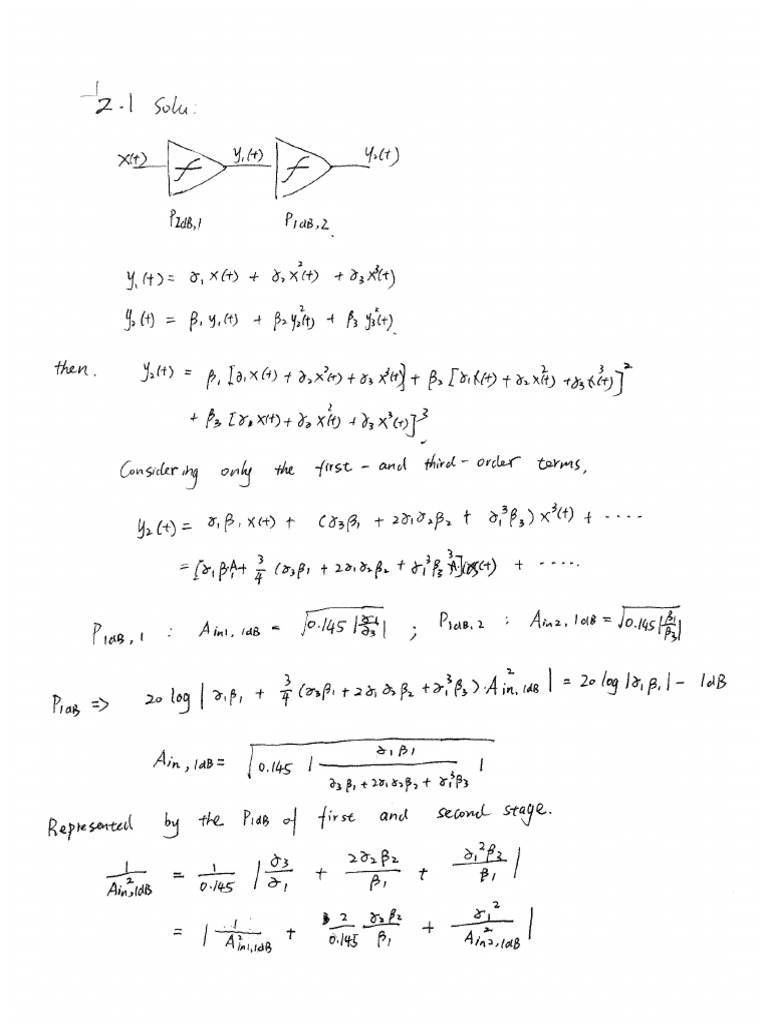 2.1 Solu:
x(t) y₁(t) y₂(t)
P2dB,1 P1dB,2.
y₁(t) = α₁x(t) + α₂x²(t) + α₃x³(t)
y₂(t) = β₁y₁(t) + β₂y₂²(t) + β₃y₃²(t).
then. y₂(t) = β₁[α₁x(t) + α₂x²(t) + α₃x³(t)] + β₂[α₁x(t) + α₂x²(t) + α₃x³(t)]²
+ β₃[α₁x(t) + α₂x²(t) + α₃x³(t)]³.
Considering only the first- and third-order terms,
y₂(t) = α₁β₁x(t) + (α₃β₁ + 2α₁α₂β₂ + α₁³β₃)x³(t) + ····
= [α₁β₁A + 3/4 (α₃β₁ + 2α₁α₂β₂ + α₁³β₃)A³]cos(t) + ·····
P1dB,1 : Ain1,1dB = √(0.145|α₁/α₃|) ; P1dB,2 : Ain2,1dB = √(0.145|β₁/β₃|)
P1dB => 20 log|α₁β₁ + 3/4 (α₃β₁ + 2α₁α₂β₂ + α₁³β₃)·A²in,1dB| = 20 log|α₁β₁| - 1dB
Ain,1dB = √(0.145 | α₁β₁ / (α₃β₁ + 2α₁α₂β₂ + α₁³β₃) |)
Represented by the P1dB of first and second stage.
1/A²in,1dB = 1/0.145 | α₃/α₁ + 2α₂β₂/β₁ + α₁²β₃/β₁ |
= | 1/A²in1,1dB + 2/0.145 α₂β₂/β₁ + α₁²/A²in2,1dB |